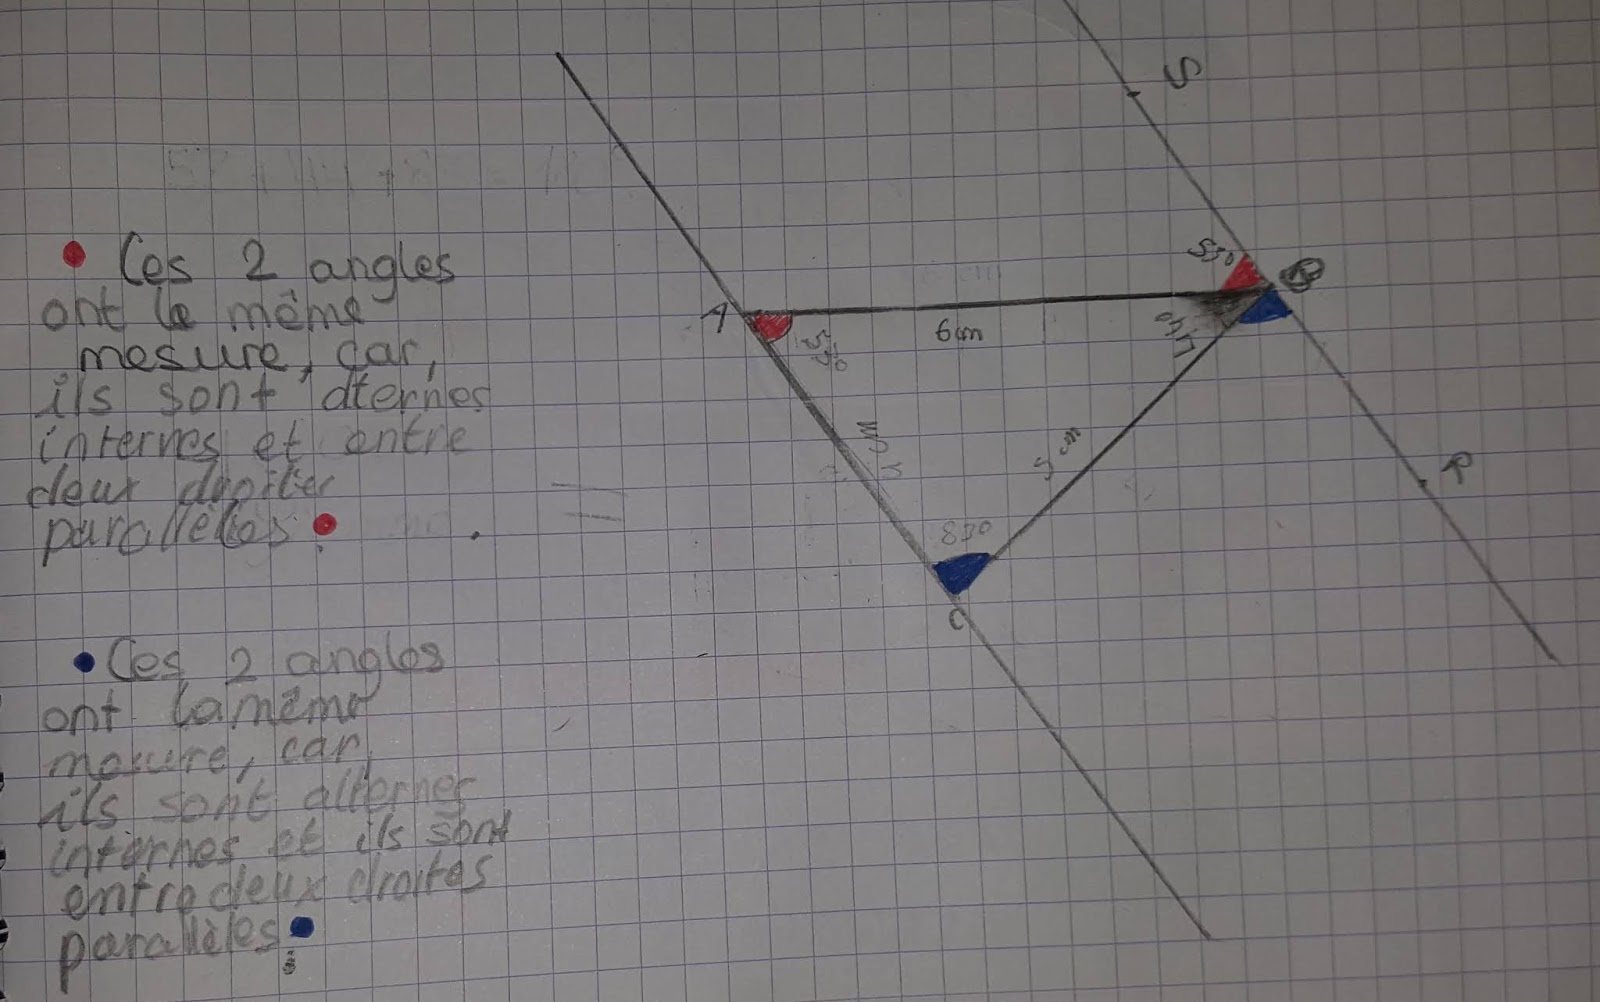 Ces 2 angles
ont le même
mesure, car,
ils sont alternes
internes et entre
deux droites
parallèles.
Ces 2 angles
ont la même
mesure, car
ils sont alternes
internes et ils sont
entre deux droites
parallèles.
S
53°
A
6cm
53°
R
83°
C